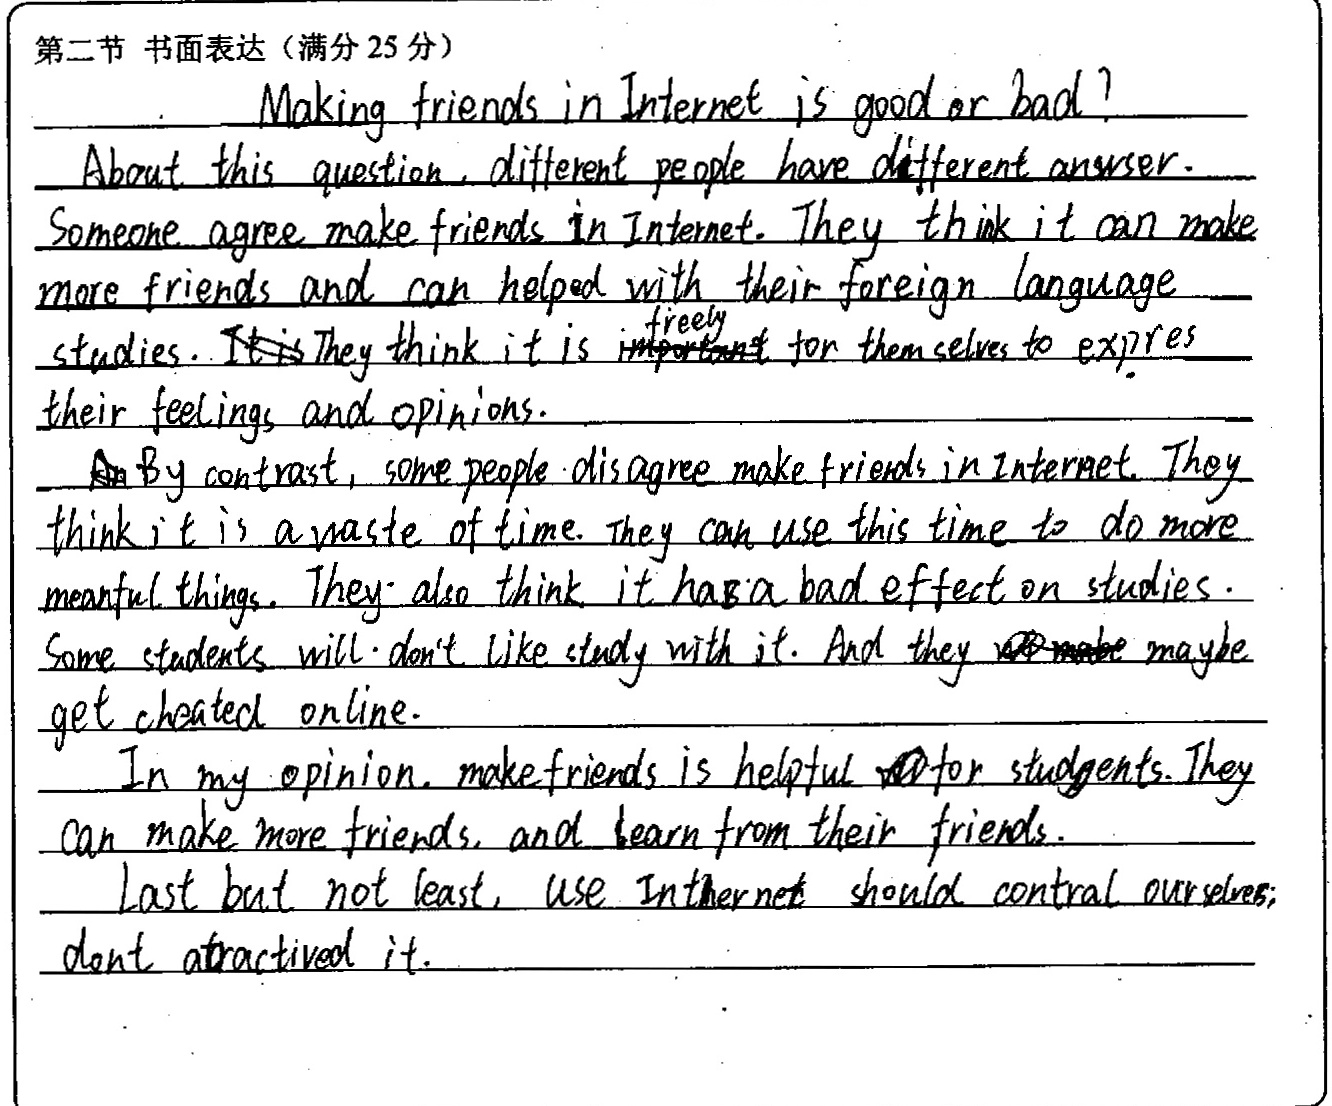 第二节 书面表达（满分 25 分）
Making friends in Internet is good or bad?
About this question, different people have different answser.
Someone agree make friends in Internet. They think it can make
more friends and can helped with their foreign language
studies. They think it is freely for themselves to expres
their feelings and opinions.
By contrast, some people disagree make friends in Internet. They
think it is a waste of time. They can use this time to do more
meanful things. They also think it has a bad effect on studies.
Some students will don't like study with it. And they maybe
get cheated online.
In my opinion. make friends is helpful for studgents. They
can make more friends, and learn from their friends.
Last but not least, use Inthernet should contral ourselves;
dont atractived it.